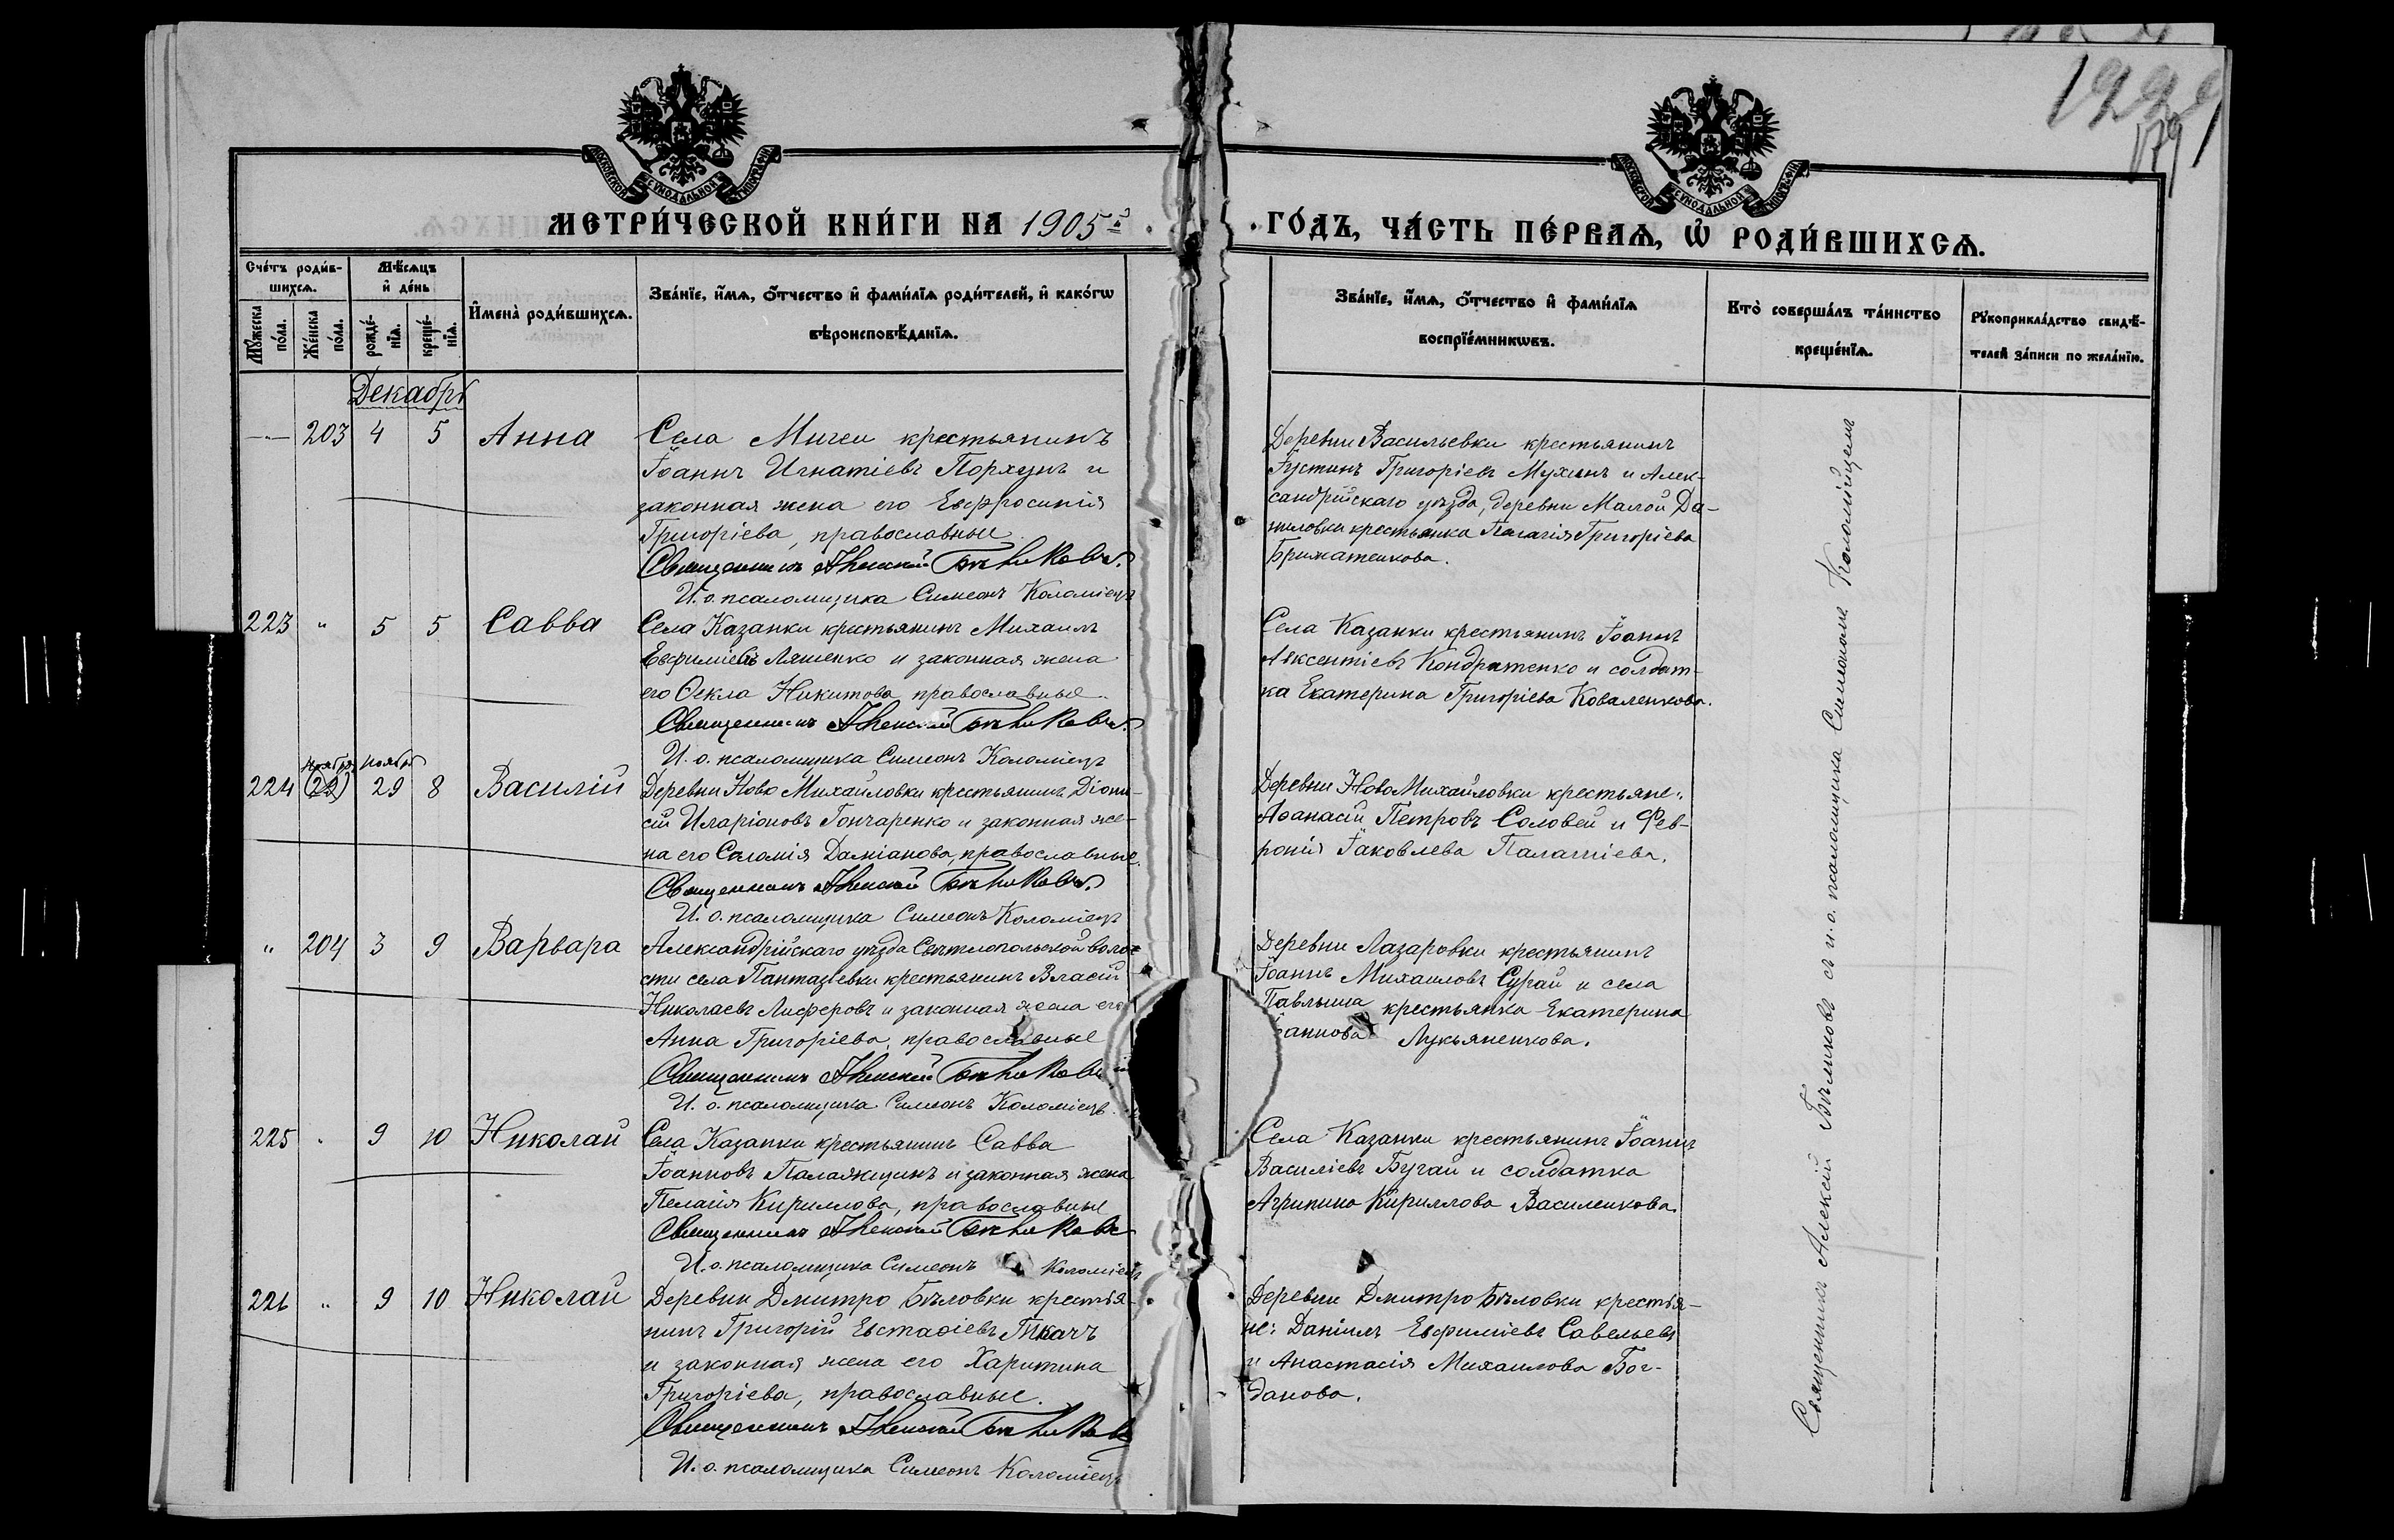 1229
179
МОСКОВСКОЙ СУНОДАЛЬНОЙ ТИПОГРАФІИ
МОСКОВСКОЙ СУНОДАЛЬНОЙ ТИПОГРАФІИ
МЕТРИ́ЧЕСКОЙ КНИ́ГИ НА 1905й
ГО́ДЪ, ЧА́СТЬ ПЕ́РВАѦ, Ѡ҆ РОДИ́ВШИХСѦ.
Сче́тъ роди́в-
шихсѧ.
Мꙋ́жеска по́ла.
Же́нска по́ла.
Мѣ́сѧцъ
и҆ де́нь
рожде́-
нїѧ.
креще́-
нїѧ.
И҆мена̀ роди́вшихсѧ.
Зва́нїе, и҆́мѧ, ѻ҆́тчество и҆ фами́лїѧ роди́телей, и҆ како́гѡ
вѣроисповѣ́данїѧ.
Зва́нїе, и҆́мѧ, ѻ҆́тчество и҆ фами́лїѧ
воспрїе́мникѡвъ.
Кто̀ соверша́лъ та́инство
креще́нїѧ.
Рꙋкоприкла́дство свидѣ́-
телей за́писи по жела́нїю.
Декабрь
— 203 4 5 Анна
Села Мигеи крестьянинъ
Іоаннъ Игнатіевъ Порхунъ и
законная жена его Евфросинія
Григоріева, православные.
Священникъ Алексій Бѣликовъ.
И. о. псаломщика Симеонъ Коломіецъ
Деревни Васильевки крестьянинъ
Іустинъ Григоріевъ Мухинъ и Алек-
сандрійскаго уѣзда, деревни Малой Да-
ниловки крестьянка Пелагія Григоріева
Брижатенкова.
223 " 5 5 Савва
Села Казанки крестьянинъ Михаилъ
Евфиміевъ Ляшенко и законная жена
его Ѳекла Никитова, православные.
Священникъ Алексій Бѣликовъ.
И. о. псаломщика Симеонъ Коломіецъ
Села Казанки крестьянинъ Іоаннъ
Авксентіевъ Кондратенко и солдат-
ка Екатерина Григоріева Коваленкова.
Ноябрь Ноябрь
224 (22) 29 8 Василій
Деревни Ново Михайловки крестьянинъ Діони-
сій Иларіоновъ Гончаренко и законная же-
на его Саломія Даміанова, православные.
Священникъ Алексій Бѣликовъ.
И. о. псаломщика Симеонъ Коломіецъ
Деревни Ново Михайловки крестьяне:
Аѳанасій Петровъ Соловей и Фев-
ронія Іаковлева
" 204 3 9 Варвара
Александрійскаго уѣзда Свѣтлопольской воло-
сти села Пантазіевки крестьянинъ Власій
Николаевъ Лиферовъ и законная жена его
Анна Григоріева, православные
Священникъ Алексій Бѣликовъ
И. о. псаломщика Симеонъ Коломіецъ.
Деревни Лазаровки крестьянинъ
Іоаннъ Михаиловъ Сурай и села
Павлыша крестьянка Екатерина
Іоаннова Лукьяненкова.
225 " 9 10 Николай
Села Казанки крестьянинъ Савва
Іоанновъ и законная жена
Пелагія Кириллова, православные
Священникъ Алексій Бѣликовъ
И. о. псаломщика Симеонъ Коломіецъ
Села Казанки крестьянинъ Іоаннъ
Василіевъ Бугай и солдатка
Агрипина Кириллова Василенкова.
226 " 9 10 Николай
Деревни Дмитро Бѣловки крестья-
нинъ Григорій Евстаѳіевъ Ткачъ
и законная жена его Харитина
Григоріева, православные.
Священникъ Алексій Бѣликовъ
И. о. псаломщика Симеонъ Коломіецъ
Деревни Дмитро Бѣловки крестья-
не: Даніилъ Евфиміевъ Савельевъ
и Анастасія Михаилова Бог-
данова.
Священникъ Алексій Бѣликовъ съ и. о. псаломщика Симеономъ Коломійцемъ